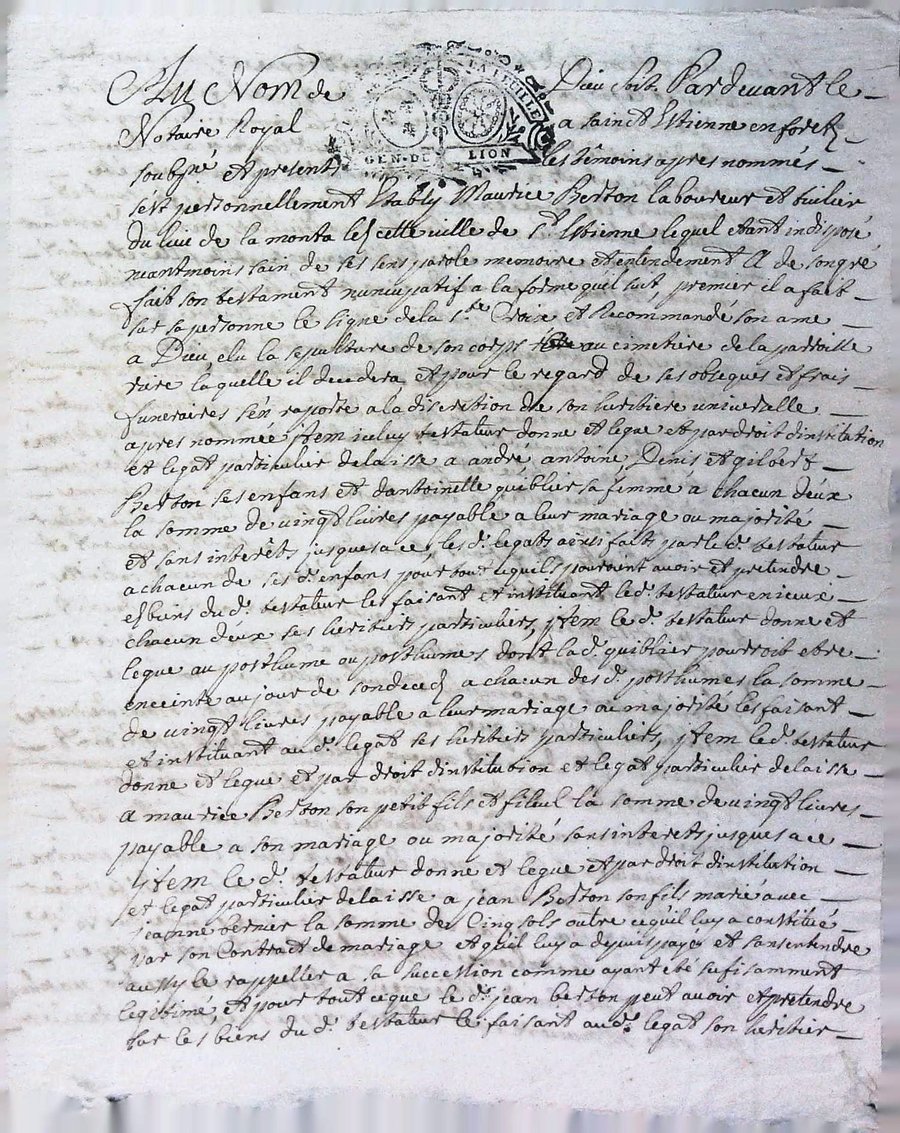 Au Nom de Dieu soit Pardevant le
LA FEUILLE
Notaire Royal a sainct Estienne en foretz
GEN·DE LION
soubsné et present les témoins apres nommés
s'est personnellement Estably Maurice Berton laboureur et tuilier
du lieu de la monta les cette ville de St Estienne lequel etant indisposé
neantmoins sain de ses sens parole memoire et entendement A de son gré
fait son testament nuncupatif a la forme qui suit, premier il a fait
sur sa personne le signe de la ste Croix et Recommandé son ame
a Dieu elu la sepulture de son corps au cimetiere de la parroisse
rure laquelle il decedera et pour le regard de ses obseques et frais
funeraires s'en raporte a la discretion de son heritiere universelle
apres nommée jtem iceluy testateur donne et legue et par droit d'institution
et legat particulier delaisse a andré antoine, Denis et gilbert
Berton ses enfans et dantoinelle quiblier sa femme a chacun deux
la somme de vingt livres payable a leur mariage ou majorité
et sans interêts jusques a ce, les d. legats ainsi faits par le d. testateur
a chacun de ses d. enfans pour tout ce quils pourroint avoir et pretendre
es biens du d. testateur les faisant et instituant le d. testateur en iceux
chacun deux ses heritiers particuliers, jtem le d. testateur donne et
legue au posthume ou posthumes dont la d. quiblier pourroit etre
enceinte au jour de son deceds a chacun des d. posthumes la somme
de vingt livres payable a leur mariage ou majorité les faisant
et instituant au d. legat ses heritiers particuliers, jtem le d. testateur
donne et legue et par droit d'institution et legat particulier delaisse
a maurice Berton son petit fils et fileul la somme de vingt livres
payable a son mariage ou majorité sans interets jusques a ce
jtem le d. testateur donne et legue et par droit d'institution
et legat particulier delaisse a jean Berton son fils marié avec
jeanne vernier la somme de Cinq sols outre ce qu'il luy a constitué
par son Contract de mariage et qu'il luy a depuis payé et sans entendre
aussy le rappeller a sa succession comme ayant été sufisamment
legitimé et pour tout ce que le d. jean berton peut avoir et pretendre
sur les biens du d. testateur le faisant au d. legat son heritier